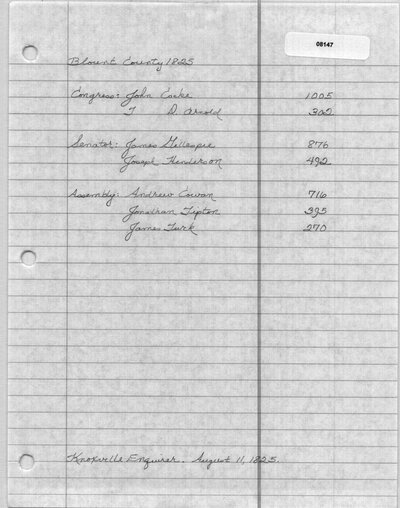 08147
Blount County 1825
Congress: John Cocke 1005
T D. Arnold 302
Senator: James Gillespie 876
Joseph Henderson 492
Assembly: Andrew Cowan 716
Jonathan Tipton 395
James Turk 270
Knoxville Enquirer. August 11, 1825.